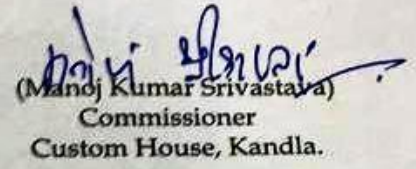 (Manoj Kumar Srivastava)
Commissioner
Custom House, Kandla.